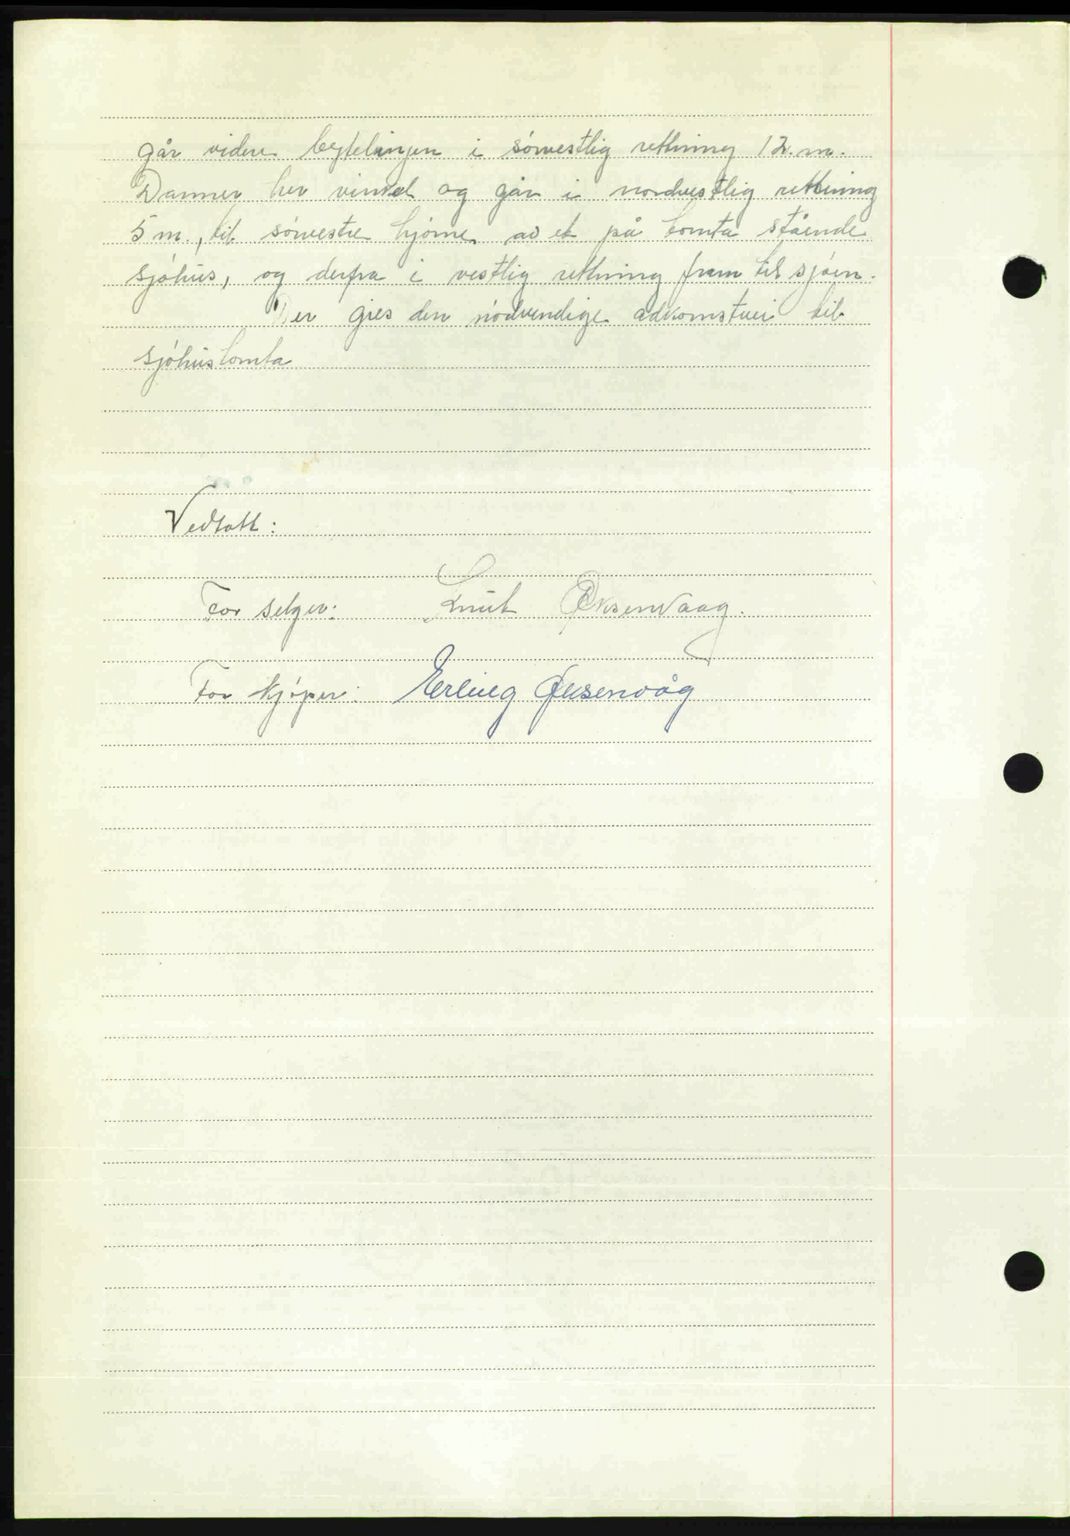 går videre byttelinjen i sörvestlig rettning 12.m.
Danner her vinkel og går i nordvestlig rettning
5 m., til sörvestre hjörne av et på tomta stående
sjöhus, og derfra i vestlig rettning fram til sjöen.
Der gies den nödvendige adkomstvei til
sjöhustomta
Vedtatt:
For selger: Knut Øksenvaag.
For kjöper: Erling Øksenvåg